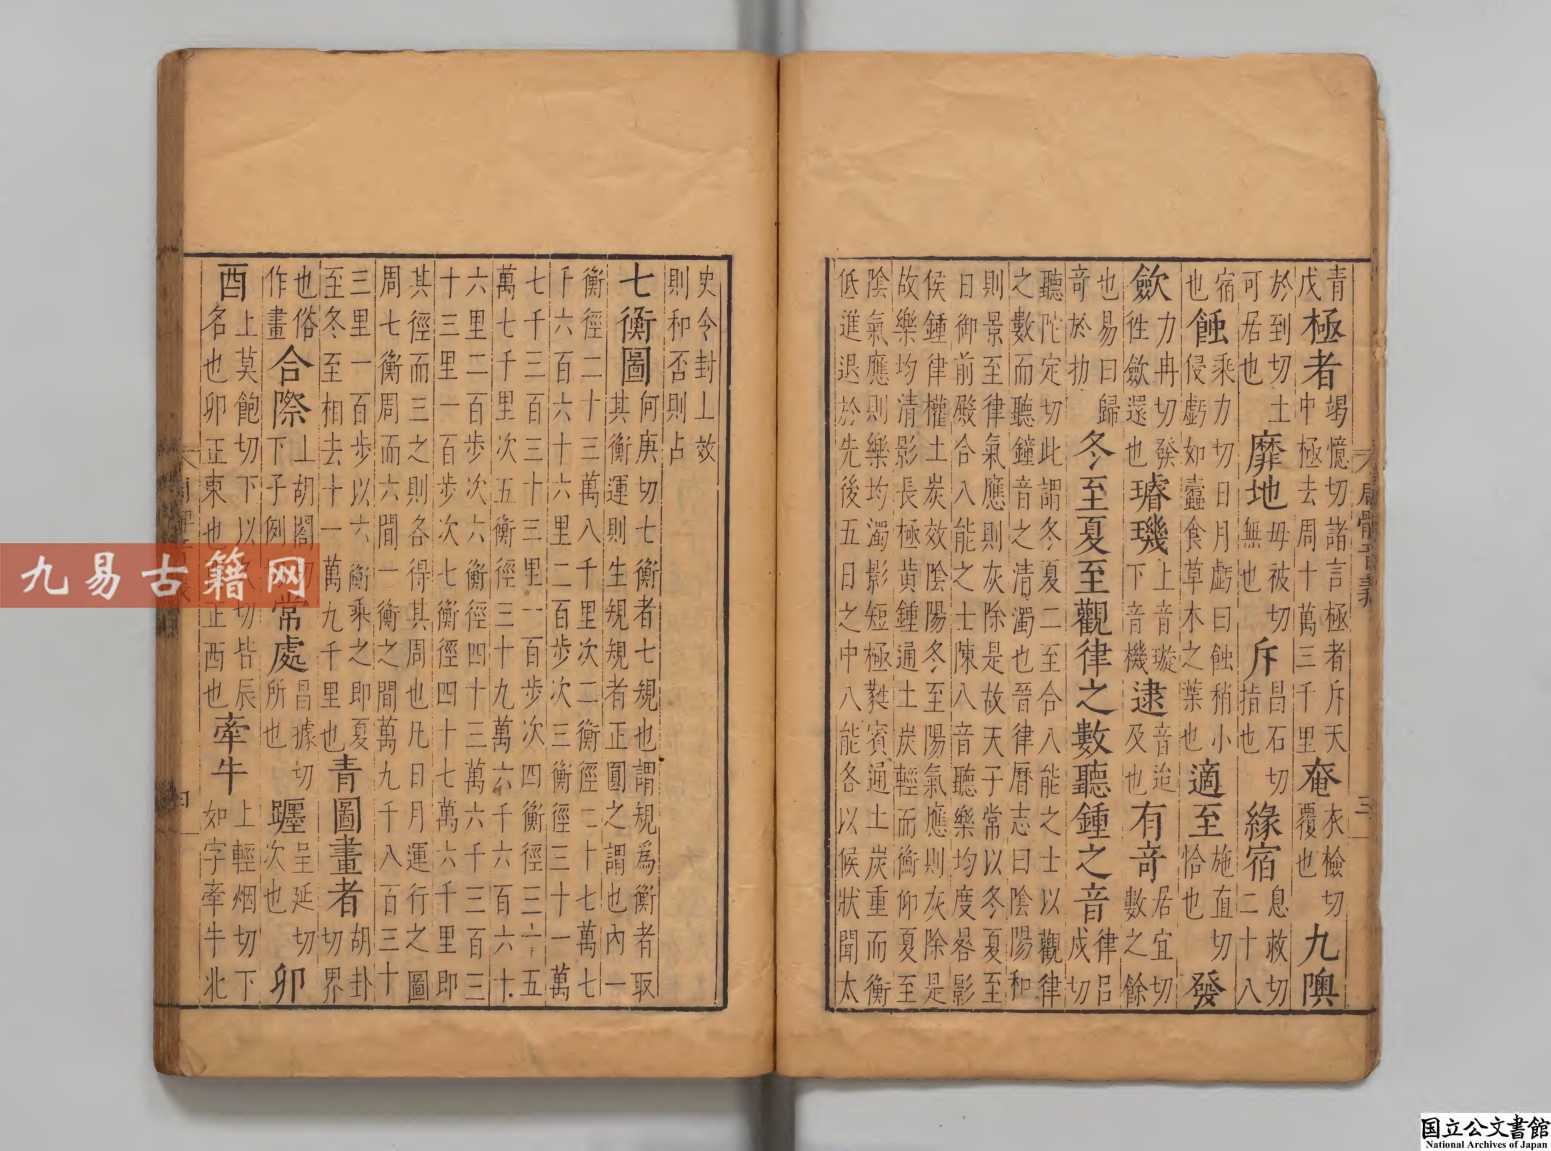 青戊極者竭憶切諸言極者斥天中極去周十萬三千里奄衣檢切覆也九隩
於到切土可居也靡地毋被切無也斥昌石切指也緣宿息救切二十八
宿也蝕乘力切日月虧曰蝕稍小侵虧如蠹食草木之葉也適至施直切恰也發
歛力冉切發徃歛還也璿璣上音璇下音機逮音迨及也有竒居宜切數之餘
也易曰歸竒於扐冬至夏至觀律之數聽鍾之音律呂戍切
聽陀定切此謂冬夏二至合八能之士以觀律之數而聽鐘音之清濁也晉律曆志曰陰陽和
則景至律氣應則灰除是故天子常以冬夏至日御前殿合八能之士陳八音聽樂均度晷影
候鍾律權土炭效陰陽冬至陽氣應則灰除是故樂均清影長極黃鍾通土炭輕而衡仰夏至
陰氣應則樂均濁影短極蕤賓通土炭重而衡低進退於先後五日之中八能各以候狀聞太
周髀音義
三
史令封上效則和否則占
七衡圖何庚切七衡者七規也謂規為衡者取其衡運則生規規者正圓之謂也內一
衡徑二十三萬八千里次二衡徑二十七萬七千六百六十六里二百步次三衡徑三十一萬
七千三百三十三里一百步次四衡徑三十五萬七千里次五衡徑三十九萬六千六百六十
六里二百步次六衡徑四十三萬六千三百三十三里一百步次七衡徑四十七萬六千里即
其徑而三之則各得其周也凡日月運行之圖周七衡周而六間一衡之間萬九千八百三十
三里一百步以六衡乘之即夏至冬至相去十一萬九千里也青圖畫者胡卦切界
也俗作畫合際上胡閤切下子例常處昌據切所也躔呈延切次也卯
酉上莫飽切下以切皆辰名也卯正東也正西也牽牛上輕烟切下如字牽牛北
四
九易古籍网
国立公文書館
National Archives of Japan